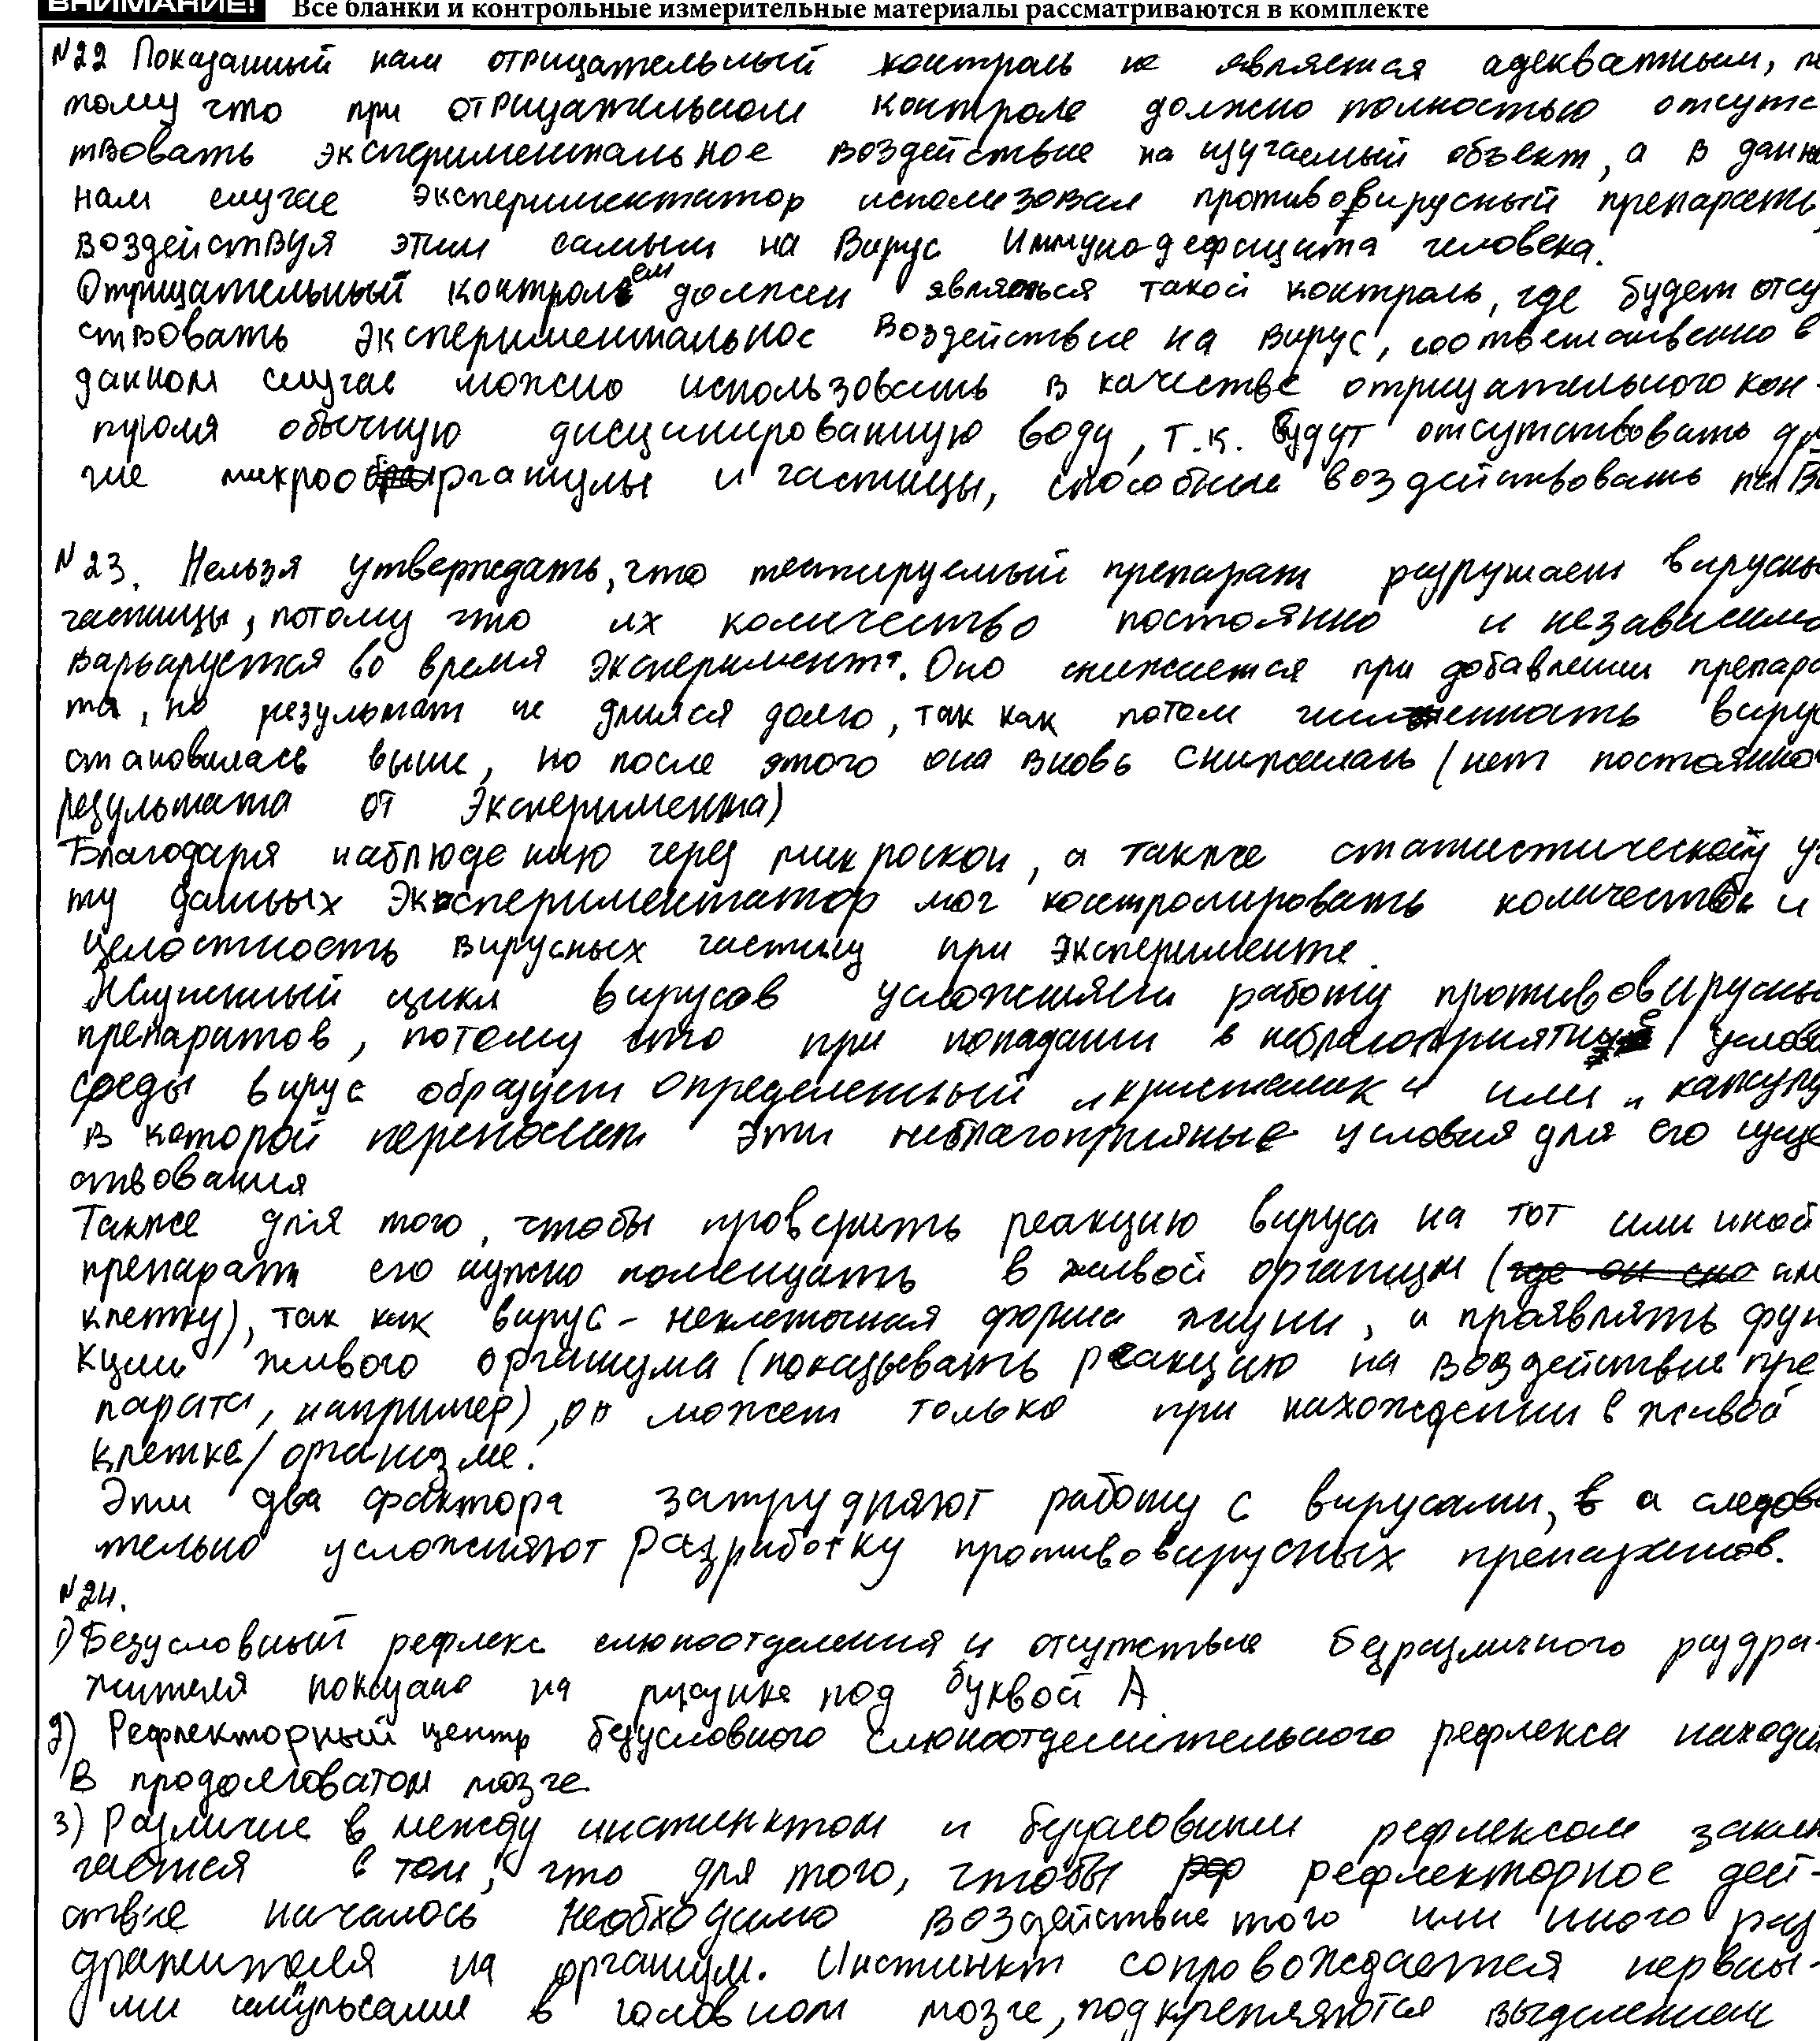 ВНИМАНИЕ! Все бланки и контрольные измерительные материалы рассматриваются в комплекте
№22 Показанный нам отрицательный контроль не является адекватным, по
тому что при отрицательном контроле должно полностью отсутс
твовать экспериментальное воздействие на изучаемый объект, а в данно
нам случае экспериментатор использовал противовирусный препарать,
воздействуя этим самым на Вирус Иммунодефицита человека.
Отрицательный контролем должен являться такой контроль, где будет отсу
ствовать экспериментальное воздействие на вирус, соответственно в
данном случае можно использовать в качестве отрицательного кон-
троля обычную дисцилированную воду, т.к. будут отсутствовать дру
гие микроорганизмы и частицы, способные воздействовать на Ви
№23. Нельзя утверждать, что тестируемый препарат разрушает вирусны
частицы, потому что их количество постоянно и независимо
варьируется во время эксперимента. Оно снижается при добавлении препара
та, но результат не длился долго, так как потом численность вирус
становилась выше, но после этого она вновь снижалась (нет постоянног
результата от эксперимента)
Благодаря наблюдению через микроскоп, а также статистическому уч
ту данных экспериментатор мог контролировать количество и
целостность вирусных частиц при эксперименте.
Жизненный цикл вирусов усложняли работу противовирусны
препаратов, потому что при попадании в неблагоприятные услови
среды вирус образует определенный „кристаллик“ или „капсулу
в которой переносит эти неблагоприяные условия для его суще
ствования
Также для того, чтобы проверить реакцию вируса на тот или иной
препарат его нужно помещать в живой организм (или
клетку), так как вирус - неклеточная форма жизни, и проявлять фун
кции живого организма (показывать реакцию на воздействие пре
парата, например), он может только при нахождении в живой
клетке/организме.
Эти два фактора затрудняют работу с вирусами, а следова
тельно усложняют разработку противовирусных препаратов.
№24.
1) Безусловный рефлекс слюноотделения и отсутствие безразличного раздра-
жителя показано на рисунке под буквой А
2) Рефлекторный центр безусловного слюноотделительного рефлекса находи
в продолговатом мозге
3) Различие в между инстинктом и безусловным рефлексом заклю
чается в том, что для того, чтобы рефлекторное дей-
ствие началось необходимо воздействие того или иного раз
дражителя на организм. Инстинкт сопровождается нервны-
ми импульсами в головном мозге, подкрепляются выделением